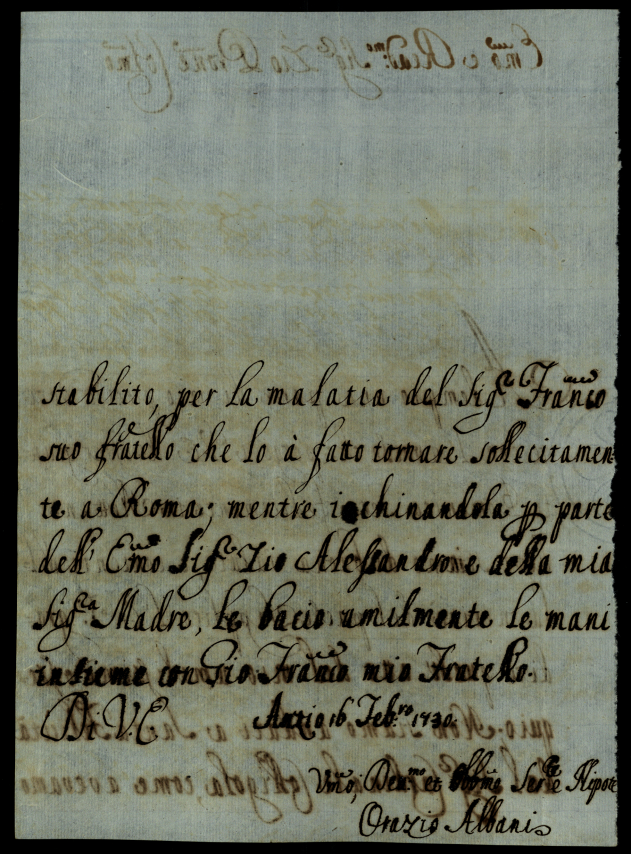 stabilito, per la malatia del Sig.r Fran.co
suo fratello che lo à fatto tornare sollecitamen
te a Roma; mentre inchinandola p parte
dell' Emo Sig.r Zio Alessandro e della mia
Sig.ra Madre, le bacio umilmente le mani
insieme con Gio Fran.co mio Fratello.
Di V. E. Anzio 16 Feb.ro 1730.
Umo, Dev.mo et Obbmo Ser.re Nipote
Orazio Albani